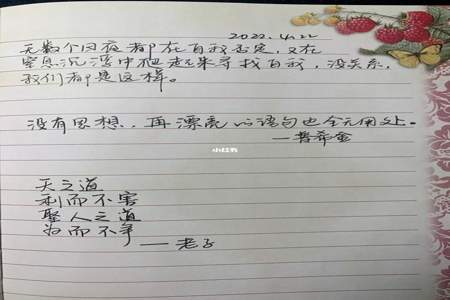 2022.4.22
无数个日夜都在自我否定，又在
窒息沉溺中爬起来寻找自我，没关系，
我们都是这样。
没有思想，再漂亮的语句也全无用处。
—普希金
小红书
天之道
利而不害
聖人之道
为而不争
——老子